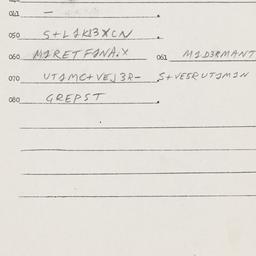 041 —
050 S+L1K13XCN
060 M1RETF1NA.X 061 M1D3RMANT
070 UT1MC+VEJ3R- S+VESRUT1M1N
080 GREPST